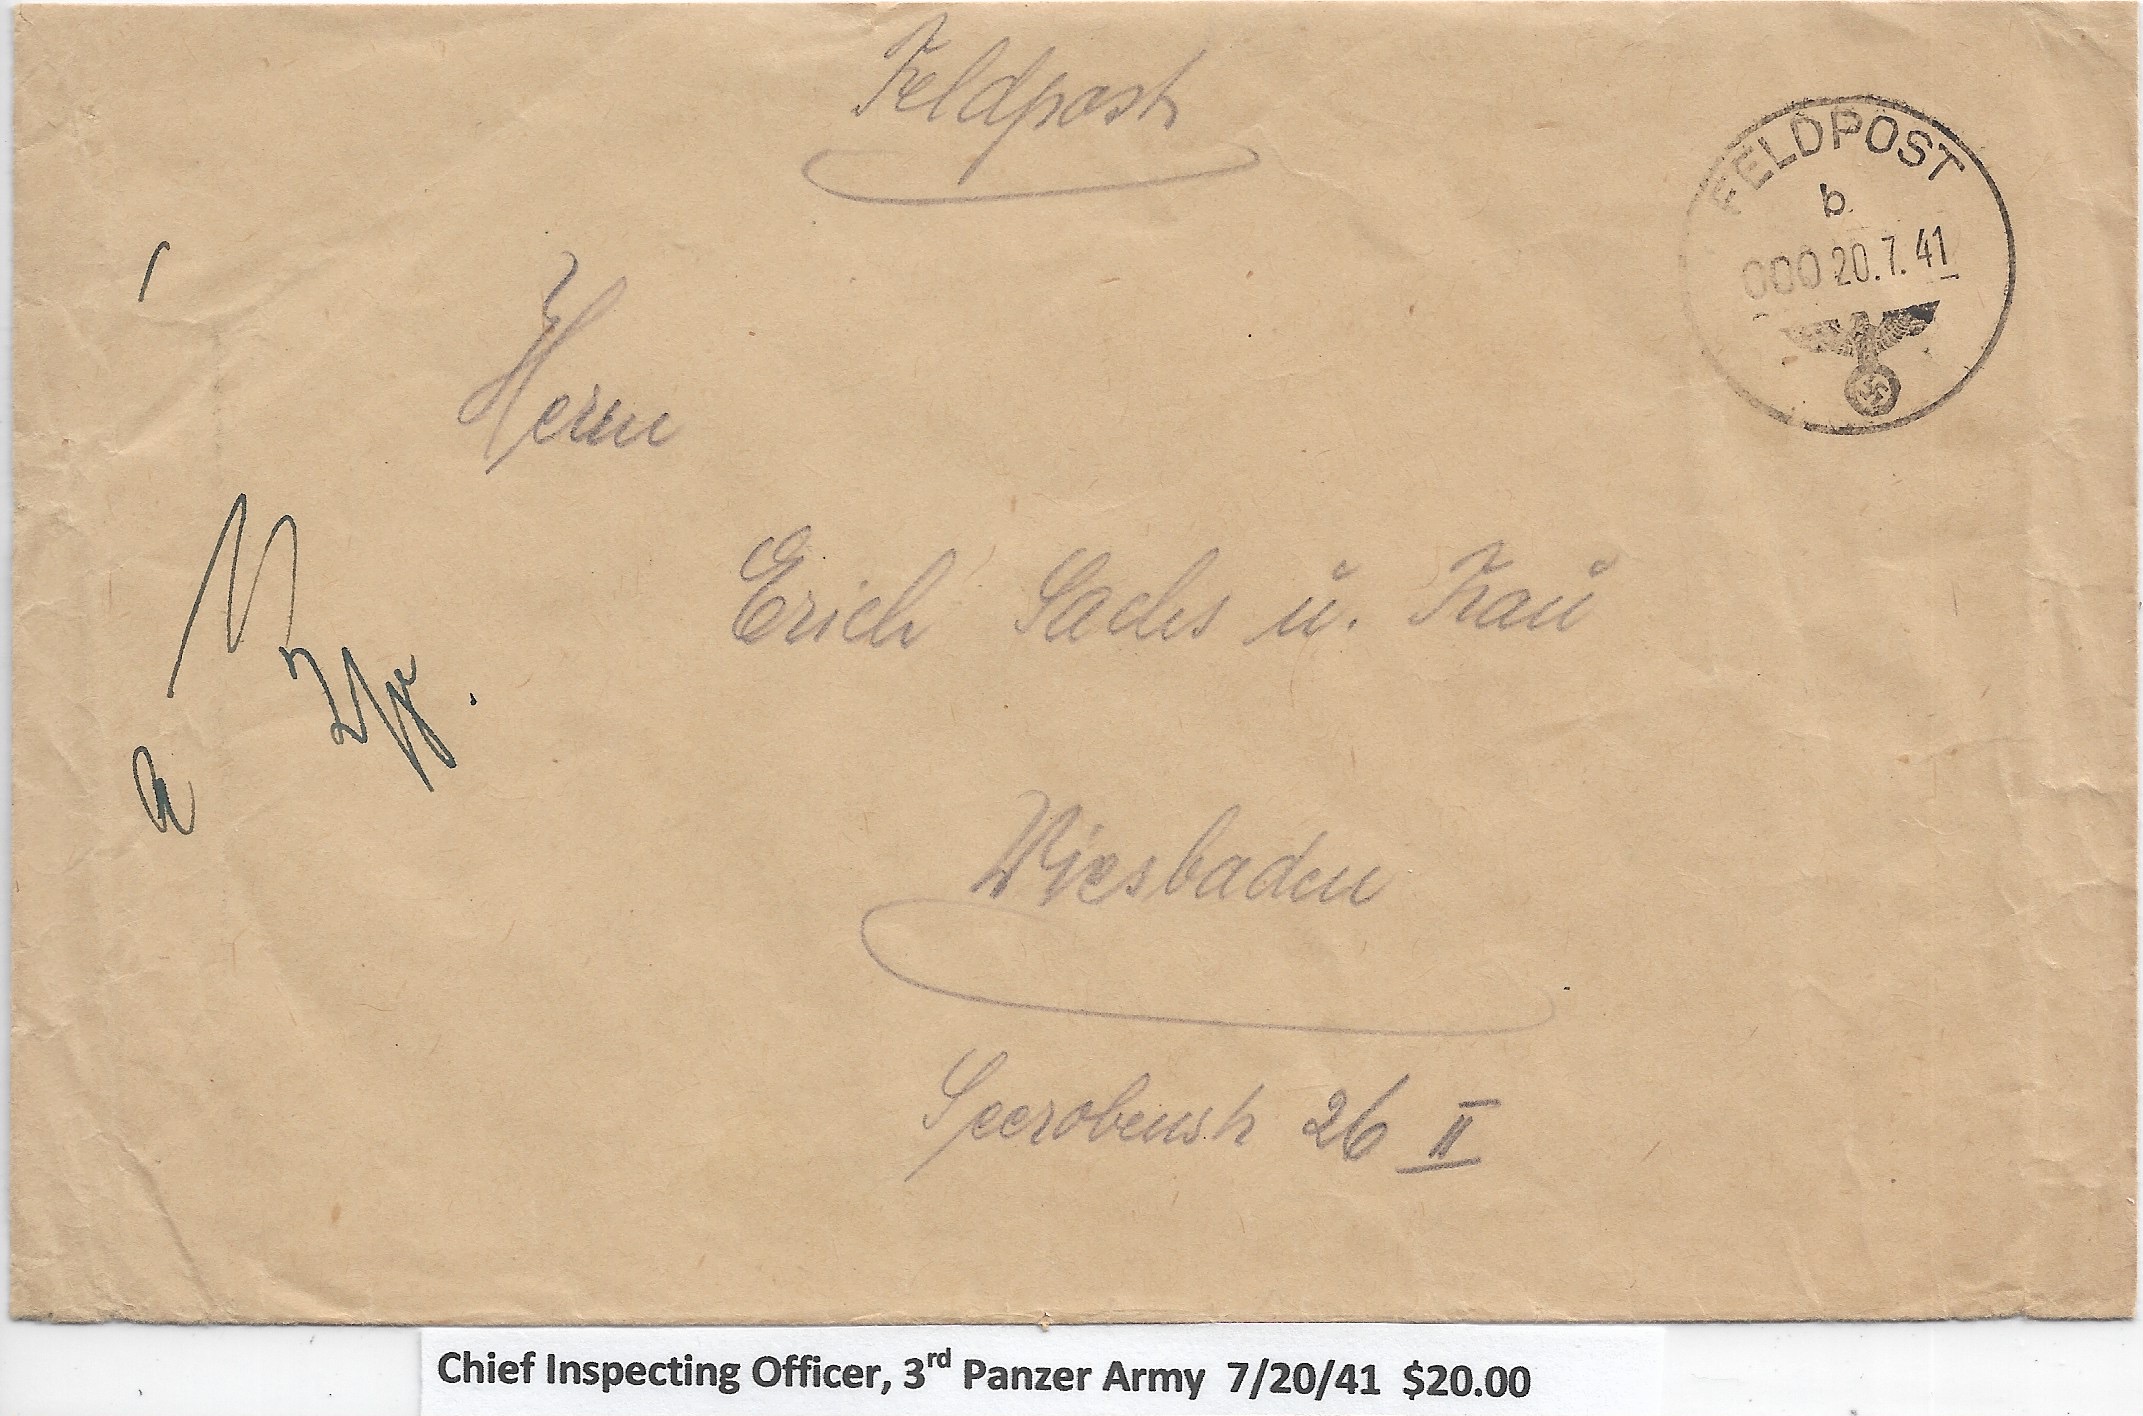 Feldpost
FELDPOST
b
000 20.7.41
Herrn
Erich Sachs u. Frau
Wiesbaden
Seerobenstr 26 II
Chief Inspecting Officer, 3rd Panzer Army 7/20/41 $20.00